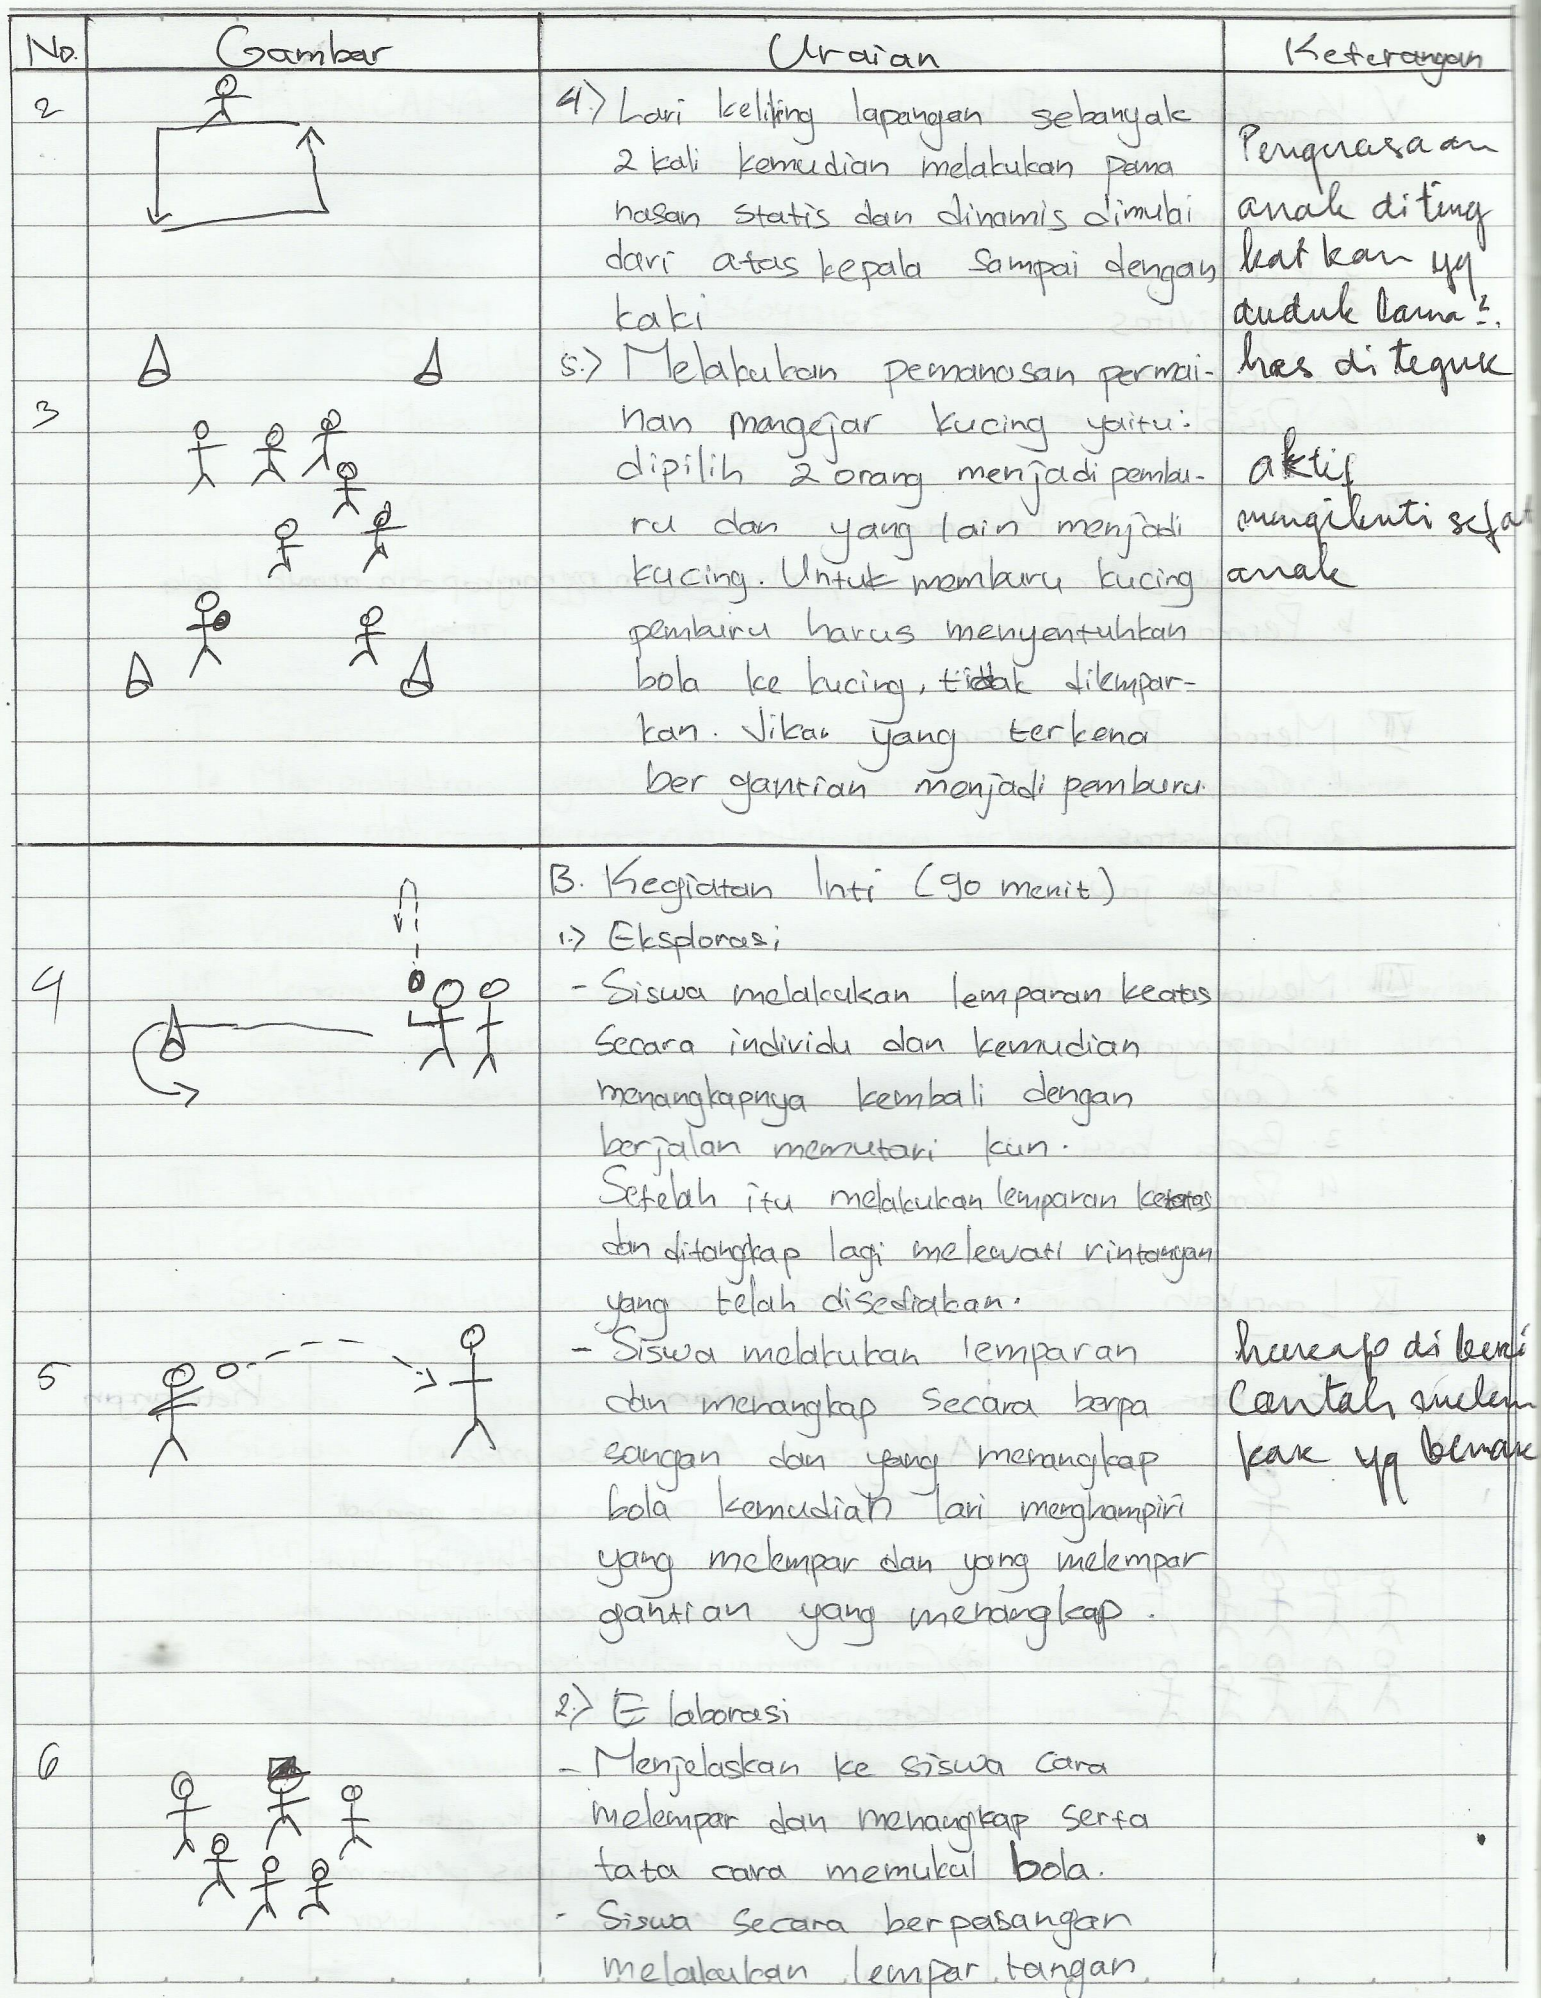 No. Gambar Uraian Keterangan
2
4.) Lari keliling lapangan sebanyak
2 kali kemudian melakukan pema
nasan statis dan dinamis dimulai
dari atas kepala sampai dengan
kaki
Penguasaan
anak diting
katkan yg
duduk lama2.
has diteguk
3
5.) Melakukan pemanasan permai-
nan mengejar kucing yaitu:
dipilih 2 orang menjadi pembu-
ru dan yang lain menjadi
kucing. Untuk memburu kucing
pemburu harus menyentuhkan
bola ke kucing, tidak dilempar-
kan. Jika yang terkena
ber gantian menjadi pemburu.
aktif
mengikuti
anak
B. Kegiatan Inti (90 menit)
1.) Eksplorasi
4
- Siswa melakukan lemparan keatas
secara individu dan kemudian
menangkapnya kembali dengan
berjalan memutari kun.
Setelah itu melakukan lemparan keatas
dan ditangkap lagi melewati rintangan
yang telah disediakan.
5
- Siswa melakukan lemparan
dan menangkap secara berpa
sangan dan yang menangkap
bola kemudian lari menghampiri
yang melempar dan yang melempar
gantian yang menangkap.
harap di beri
Contah
yg
2.) E laborasi
6
- Menjelaskan ke siswa cara
melempar dan menangkap serta
tata cara memukul bola.
- Siswa secara berpasangan
melakukan lempar tangan